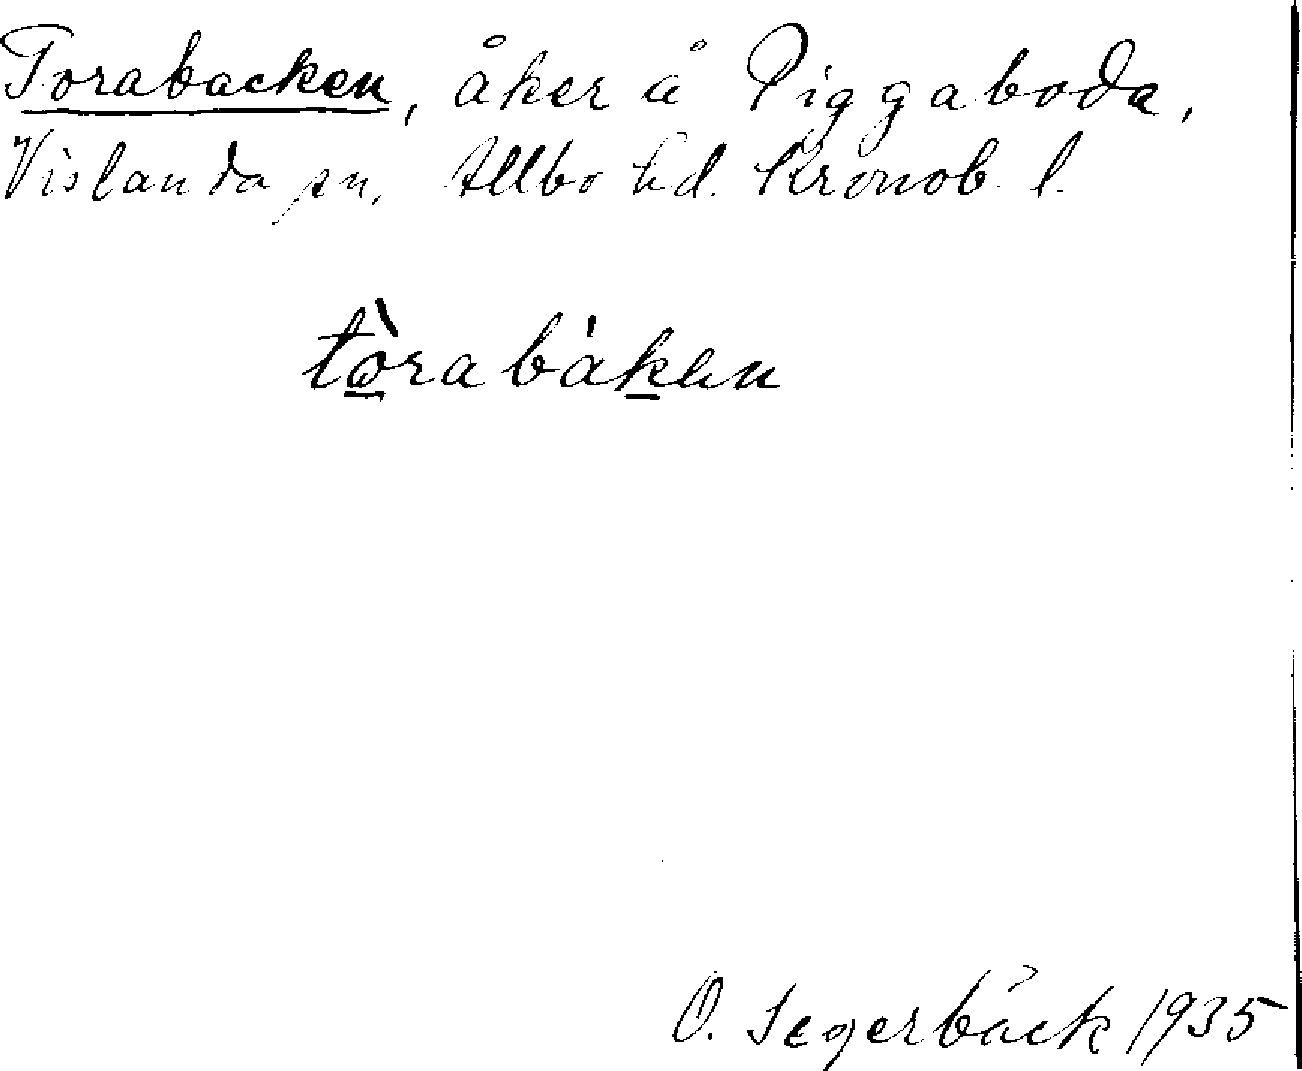 Torabacken, åker å Piggaboda,
Vislanda sn. Allbo hd. Kronob. l.
tòrabákan
O. Segerbäck 1935